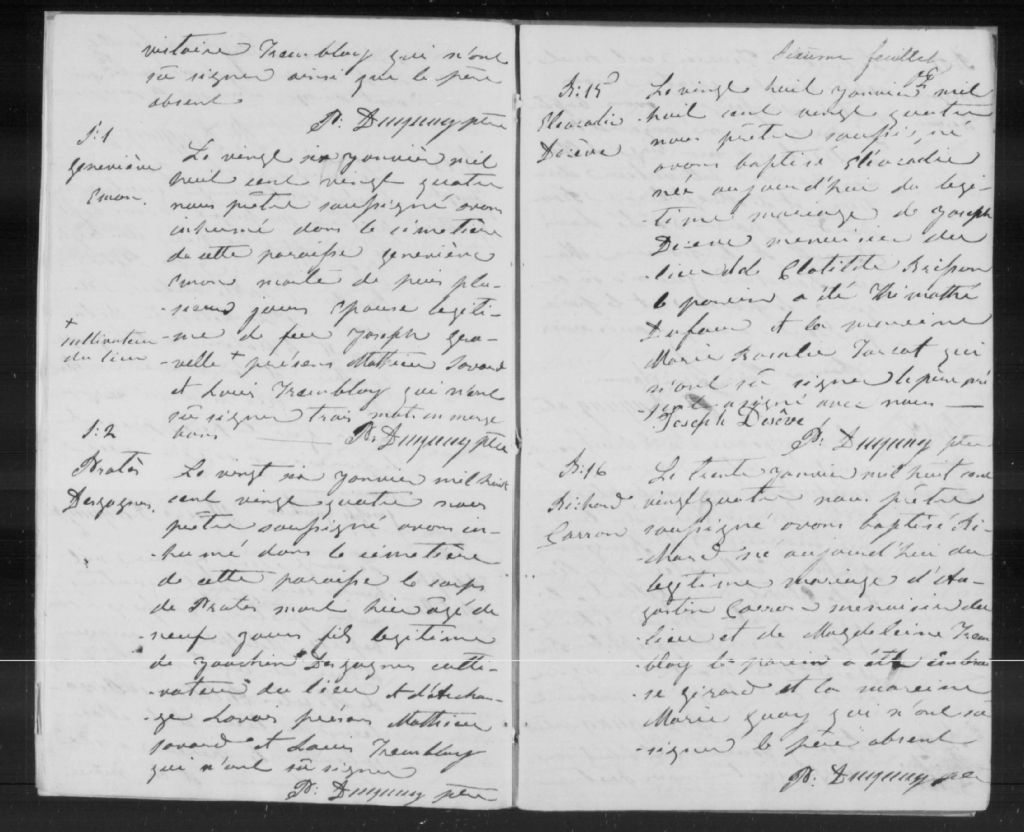 victoire Tremblay qui n'ont
sû signer ainsi que le père
absent
P. Duguay ptre
S: 1
Geneviève
Emon.
Le vingt six janvier mil
huit cent vingt quatre
nous prêtre soussigné avons
inhumé dans le cimetière
de cette paroisse Geneviève
Emon morte de puis plu-
-sieurs jours Epouse legiti-
-me de feu Joseph Gra-
+
cultivateur
du lieu
-velle + présens Mathieu Savard
et Louis Tremblay qui n'ont
sû signer trois mots en marge
bons
P. Duguay ptre
S: 2
Protês
Desgagnes.
Le vingt six janvier mil huit
cent vingt quatre nous
prêtre soussigné avons in-
-humé dans le cimetière
de cette paroisse le corps
de Protês mort hier âgé de
neuf jours fils legitime
de Joachim Desgagnes culti-
-vateur du lieu et d'
présens Mathieu
Savard et Louis Tremblay
qui n'ont sû signer
P. Duguay ptre
feuillet
B: 15
Eléocadie
Desève
Le vingt huit janvier mil
huit cent vingt quatre
nous prêtre soussigné
avons baptisé Eléocadie
née aujourd'hui du legi-
-time mariage de Joseph
Deseve menuisier du
lieu et d Clotilde Brisson
le parein a été Thimothé
Dufour et la mareine
Marie Rosalie Turcot qui
n'ont sû signer le père pré
-sent a signé avec nous
Joseph Desêve
P. Duguay ptre
B: 16
Richard
Carron
Le trente janvier mil huit cent
vingt quatre nous prêtre
soussigné avons baptisé Ri-
-chard né aujourd'hui du
legitime mariage d'Au-
-gustin Carron menuisier du
lieu et de Magdeleine Trem
blay le parein a été Ambroi
-se Girard et la mareine
Marie Guay qui n'ont sû
-signer le père absent
P. Duguay ptre